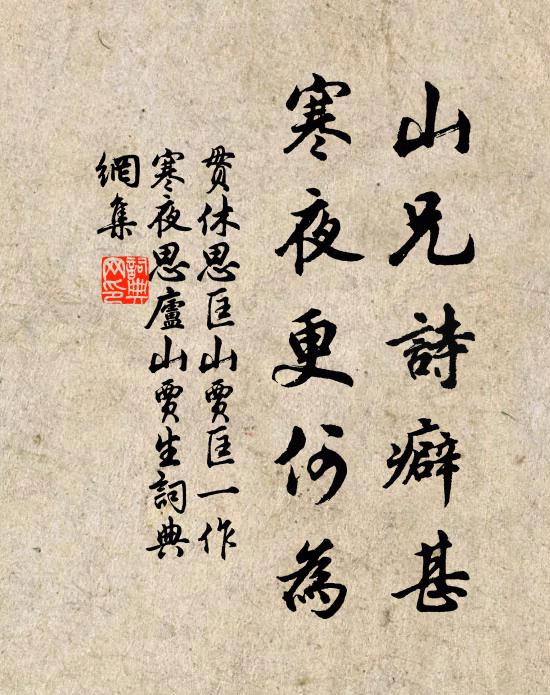 山兄詩癖甚
寒夜更何為
贯休思匡山賈匡一作
寒夜思廬山賈生詞典
網集
詞典
网印